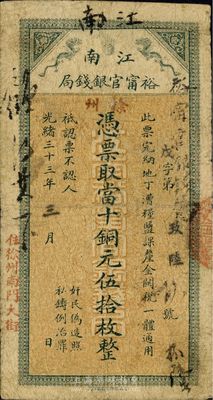 江南
江南
裕甯官銀錢局
徐州
此票完納地丁漕糧鹽課釐金關稅一體適用
戊字第 號
憑票取當十銅元伍拾枚整
祗認票不認人
光緒三十三年三月 日
奸民僞造照
私鑄例治罪
住徐州南門大街